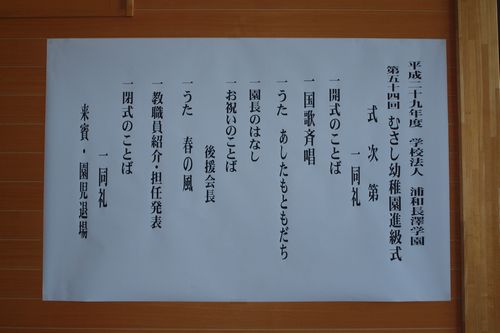 平成二十九年度 学校法人 浦和長澤学園
第五十四回 むさし幼稚園進級式
式次第
一同礼
一開式のことば
一国歌斉唱
一うた あしたもともだち
一園長のはなし
一お祝いのことば
後援会長
一うた 春の風
一教職員紹介・担任発表
一閉式のことば
一同礼
来賓・園児退場